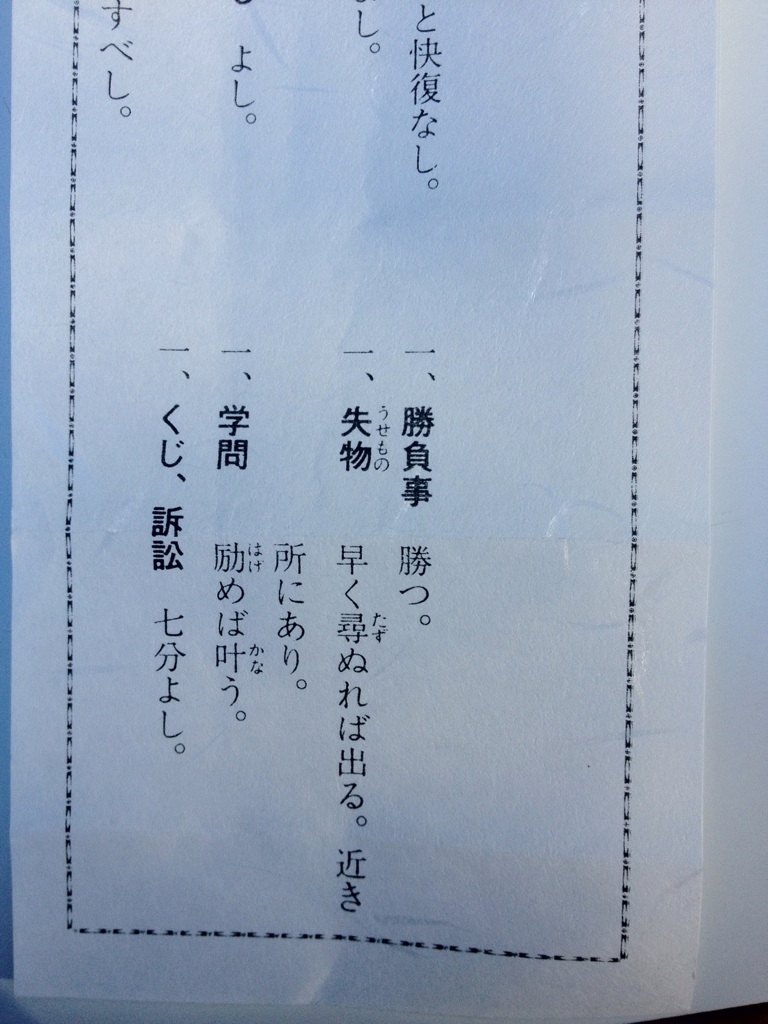 と快復なし。
よし。
よし。
すべし。
一、勝負事 勝つ。
一、失物 早く尋ぬれば出る。近き
うせもの
たず
所にあり。
一、学問 励めば叶う。
はげ
かな
一、くじ、訴訟 七分よし。